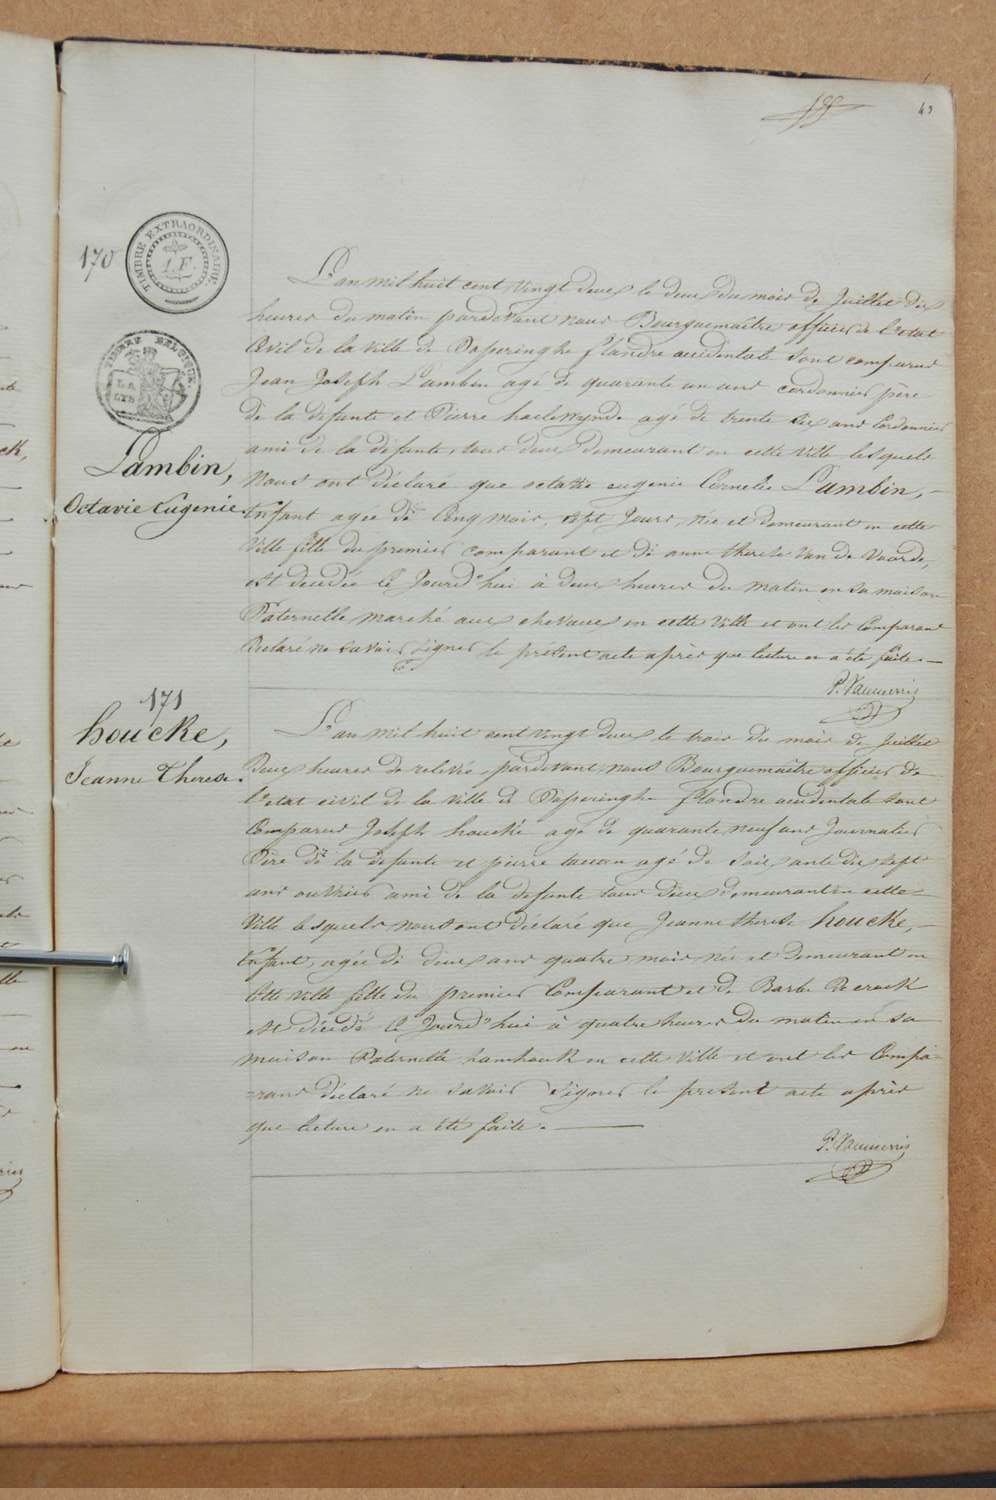 43
170
TIMBRE EXTRAORDINAIRE
TIMBRE BELGIQUE
LA LYS
Lambin,
Octavie Eugenie
L'an mil huit cent vingt deux le deux du mois de Juillet dix
heures du matin pardevant nous Bourguemaître officier de l'etat
Civil de la ville de Poperinghe flandre occidentale sont comparus
Jean Joseph Lambin agé de quarante un ans cordonnier père
de la défunte et Pierre haelewynde agé de trente six ans Cordonnier
ami de la défunte, tous deux demeurant en cette ville lesquels
Nous ont déclaré que octavie eugenie Cornelie Lambin,
Enfant agée de Cinq mois, sept Jours, née et demeurant en cette
Ville fille du premier comparant et de anne therese Van de Voorde,
est decedée ce Jourd'hui à deux heures du matin en sa maison
Paternelle marché aux chevaux en cette Ville et ont les Comparans
Declaré ne savoir signer le présent acte après que lecture en a été faite.
P. Vanmerris
171
houcke,
Jeanne Therese.
L'an mil huit cent vingt deux le trois du mois de Juillet
Deux heures de relevée, pardevant nous Bourguemaître officier de
l'etat civil de la ville de Poperinghe flandre occidentale sont
Comparus Joseph houcke agé de quarante neuf ans Journalier
Père de la défunte et pierre agé de soixante dix sept
ans ouvrier ami de la defunte tous deux demeurant en cette
Ville lesquels nous ont déclaré que Jeanne therese houcke,
Enfant, agée de deux ans quatre mois née et demeurant en
Cette ville fille du premier Comparant et de Barbe
est décedé ce Jourd'hui à quatre heures du matin en sa
maison Paternelle hamhouk en cette ville et ont les Compa-
=rans déclaré ne savoir Signer le present acte après
que lecture en a été faite.
P. Vanmerris